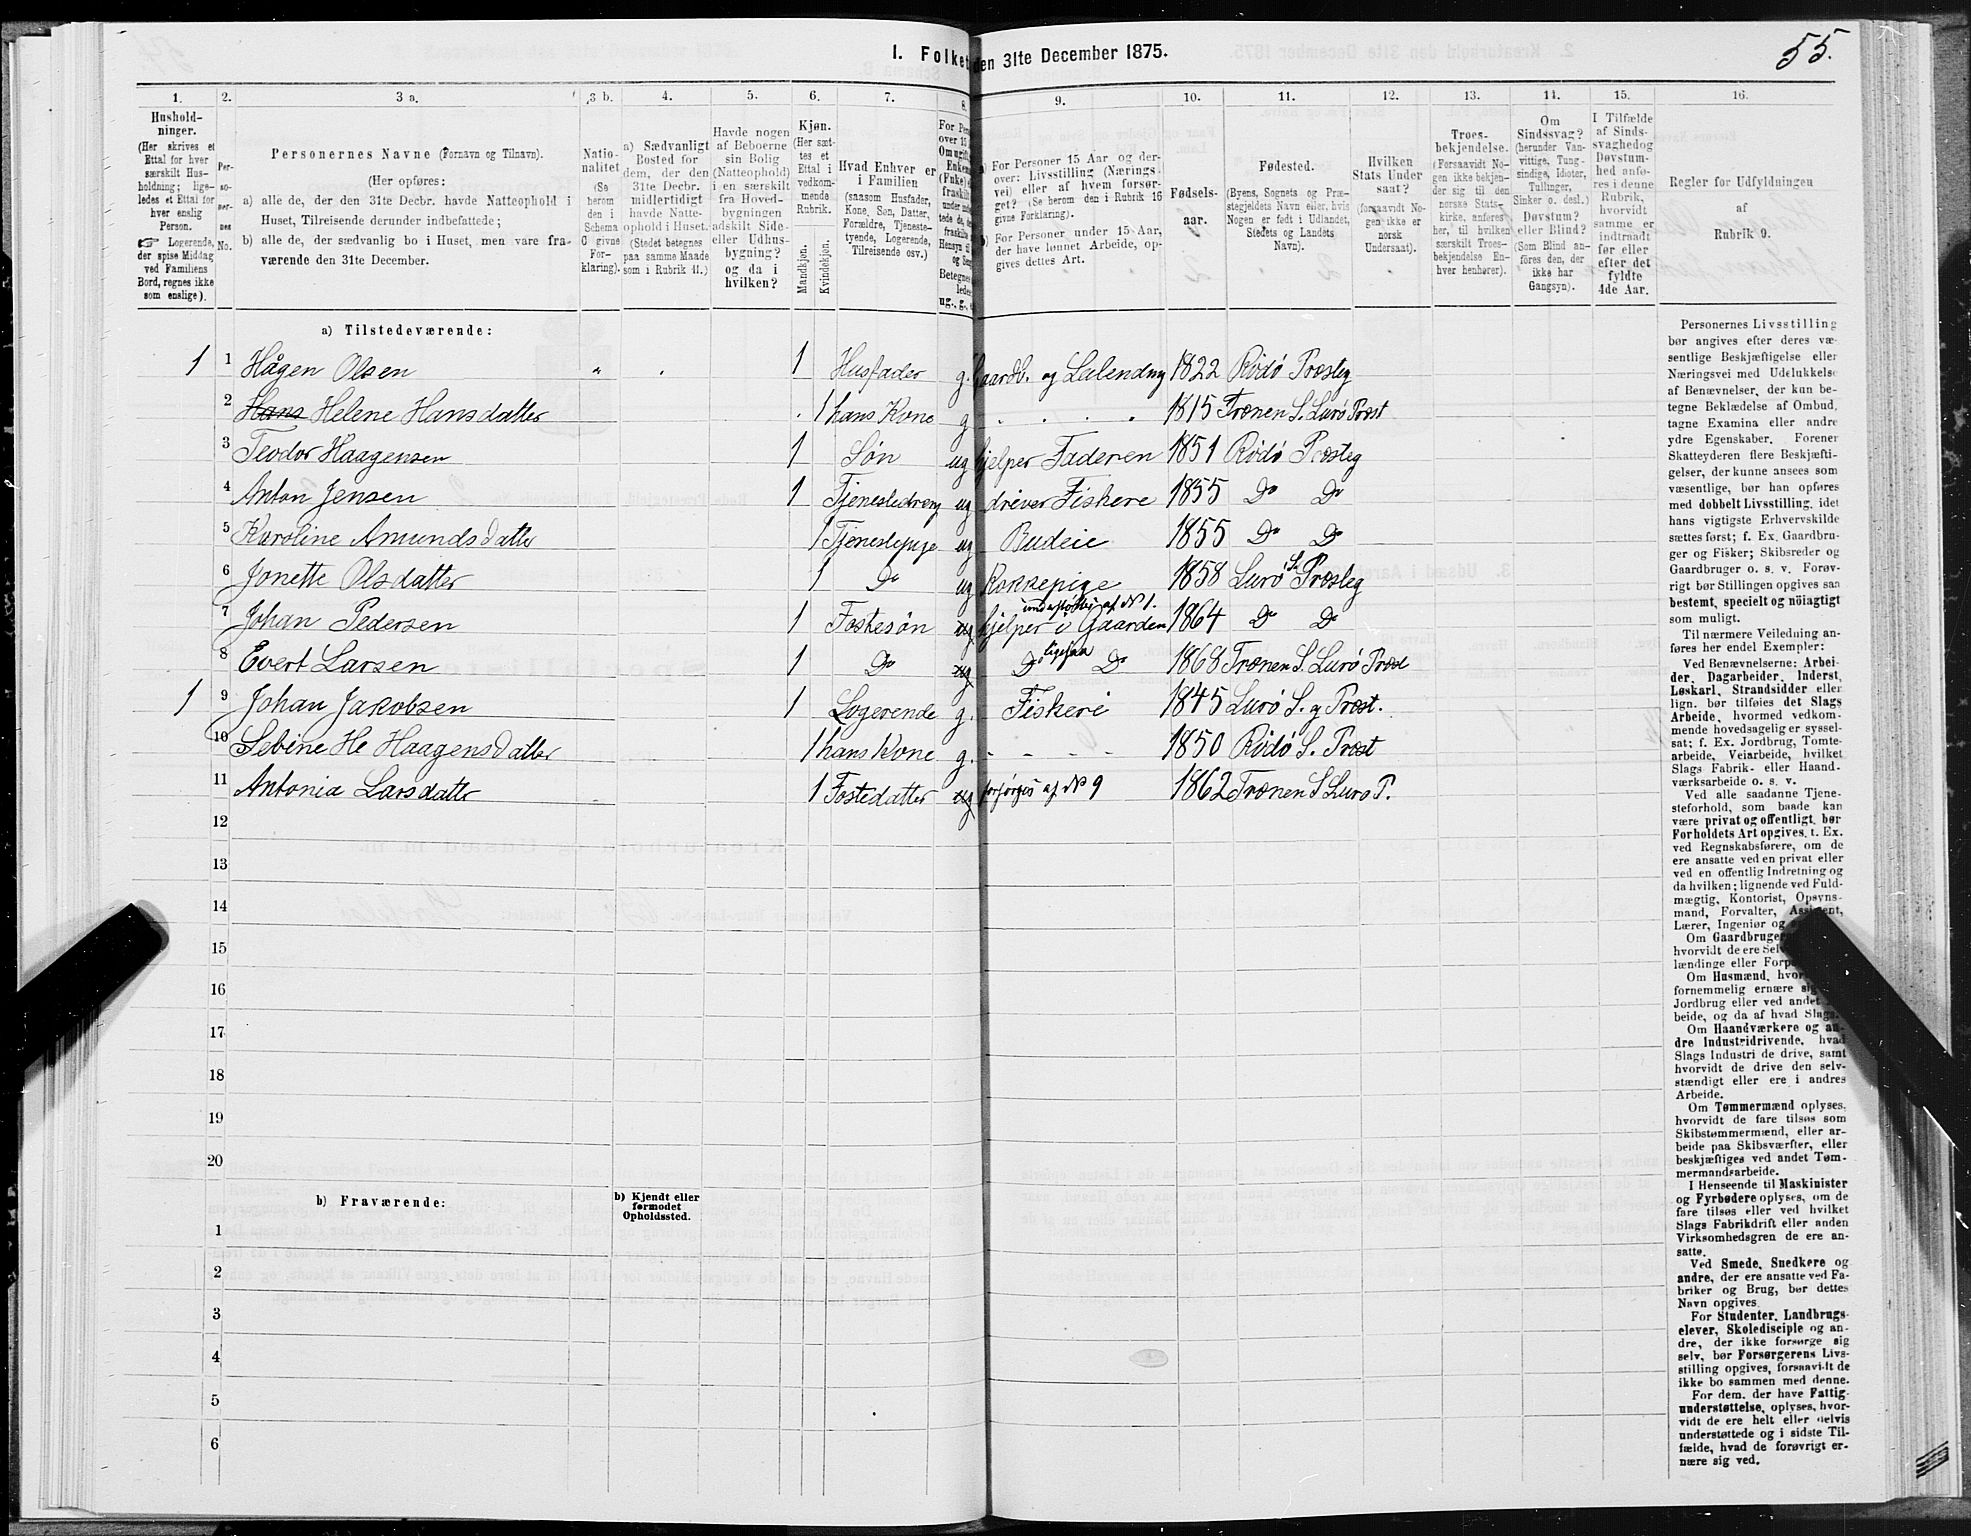 I. Folket den 31te December 1875.
55.
1. 2. 3 a. 3 b. 4. 5. 6. 7. 8. 9. 10. 11. 12. 13. 14. 15. 16.
Hushold-
ninger.
(Her skrives et
Ettal for hver
særskilt Hus-
holdning; lige-
ledes et Ettal for
hver enslig
Person.
☞ Logerende,
der spise Middag
ved Familiens
Bord, regnes ikke
som enslige).
Per-
so-
ner-
nes
No.
Personernes Navne (Fornavn og Tilnavn).
(Her opføres:
a) alle de, der den 31te Decbr. havde Natteophold i
Huset, Tilreisende derunder indbefattede;
b) alle de, der sædvanlig bo i Huset, men vare fra-
værende den 31te December.
Natio-
nalitet
(Se
herom
den i
Schema
C givne
For-
klaring).
a) Sædvanligt
Bosted for
dem, der den
31te Decbr.
midlertidigt
havde Natte-
ophold i Huset.
(Stedet betegnes
paa samme Maade
som i Rubrik 11.)
Havde nogen
af Beboerne
sin Bolig
(Natteophold)
i en særskilt
fra Hoved-
bygningen
adskilt Side-
eller Udhus-
bygning?
og da i
hvilken?
Kjøn.
(Her sæt-
tes et
Ettal i
vedkom-
mende
Rubrik.
Mandkjøn.
Kvindekjøn.
Hvad Enhver er
i Familien
(saasom Husfader,
Kone, Søn, Datter,
Forældre, Tjeneste-
tyende, Logerende,
Tilreisende osv.)
For Per
over 15
Om ugift,
Enkem
(Fuke)
fraskilt
ug., g., e
a) For Personer 15 Aar og der-
over: Livsstilling (Nærings-
vei) eller af hvem forsør-
get? (Se herom den i Rubrik 16
givne Forklaring).
b) For Personer under 15 Aar,
der have lønnet Arbeide, op-
gives dettes Art.
Fødsels-
aar.
Fødested.
(Byens, Sognets og Præ-
stegjeldets Navn eller, hvis
Nogen er født i Udlandet,
Stedets og Landets
Navn).
Hvilken
Stats Under
saat?
(forsaavidt No-
gen ikke er
norsk
Undersaat).
Troes-
bekjendelse.
(Forsaavidt No-
gen ikke bekjen-
der sig til den
norske Stats-
kirke, anføres
her, til hvilken
særskilt Troes-
bekjendelse En-
hver henhører).
Om
Sindssvag?
(herunder Van-
vittige, Tung-
sindige, Idioter,
Tullinger,
Sinker o. desl.)
Døvstum?
eller Blind?
(Som Blind an-
føres den, der
ikke har
Gangsyn).
I Tilfælde
af Sinds-
svaghedog
Døvstum-
hed anfø-
res i denne
Rubrik,
hvorvidt
samme er
indtraadt
før eller
efter det
fyldte
4de Aar.
Regler for Udfyldningen
af
Rubrik 9.
a) Tilstedeværende:
1 1 Hågen Olsen 1 Husfader g. Gaardb. og Lalendmg 1822 Rödö Præsteg
2 Hans Helene Hansdatter 1 hans Kone g 1815 Trænen S. Lurö Præst
3 Teodor Haagensen 1 Søn ug hjelper Faderen 1851 Rödö Præsteg
4 Anton Jensen 1 Tjenestedreng ug driver Fiskere 1855 Do Do
5 Karoline Amundsdatter 1 Tjenestepige ug Budeie 1855 Do Do
6 Jonette Olsdatter 1 Do ug Kokkepige 1858 Lurö S. Præsteg
7 Johan Pedersen 1 Fostesøn ug. hjelper i Gaarden af No 1. 1864 Do Do
8 Evert Larsen 1 Do ug Do ligesaa Do 1868 Trænen S. Lurö Præst
1 9 Johan Jakobsen 1 Logerende g. Fiskeri 1845 Lurö S. og Præst.
10 Sebine He Haagensdatter 1 hans Kone g. 1850 Rödö S. Præst
11 Antonia Larsdatter 1 Fostedatter ug forsørges af No 9 1862 Trænen S Lurö P.
12
13
14
15
16
17
18
19
20
b) Fraværende:
b) Kjendt eller
formodet
Opholdssted.
1
2
3
4
5
6
Personernes Livsstilling
bør angives efter deres væ-
sentlige Beskjæftigelse eller
Næringsvei med Udelukkelse
af Benævnelser, der kun be-
tegne Beklædelse af Ombud,
tagne Examina eller andre
ydre Egenskaber. Forener
Skatteyderen flere Beskjæfti-
gelser, der kunne ansees som
væsentlige, bør han opføres
med dobbelt Livsstilling, idet
hans vigtigste Erhvervskilde
sættes først; f. Ex. Gaardbru-
ger og Fisker; Skibsreder og
Gaardbruger o. s. v. Forøv-
rigt bør Stillingen opgives saa
bestemt, specielt og nöiagtigt
som muligt.
Til nærmere Veiledning an-
føres her endel Exempler:
Ved Benævnelserne: Arbei-
der, Dagarbeider, Inderst,
Løskarl, Strandsidder eller
lign. bør tilføies det Slags
Arbeide, hvormed vedkom-
mende hovedsagelig er syssel-
sat; f. Ex. Jordbrug, Tomte-
arbeide, Veiarbeide, hvilket
Slags Fabrik- eller Haand-
værksarbeide o. s. v.
Ved alle saadanne Tjene-
steforhold, som baade kan
være privat og offentligt, bør
Forholdets Art opgives, t. Ex.
ved Regnskabsførere, om de
ere ansatte ved en privat eller
ved en offentlig Indretning og
da hvilken; lignende ved Fuld-
mægtig, Kontorist, Opsyns-
mand, Forvalter, Assistent,
Lærer, Ingeniør og
Om Gaardbrugere
hvorvidt de ere Selv
lændinge eller Forp
Om Husmænd, hvor
fornemmelig ernære sig
Jordbrug eller ved andet
beide, og da af hvad Slags.
Om Haandværkere og an-
dre Industridrivende, hvad
Slags Industri de drive, samt
hvorvidt de drive den selv-
stændigt eller ere i andres
Arbeide.
Om Tømmermænd oplyses,
hvorvidt de fare tilsøs som
Skibstømmermænd, eller ar-
beide paa Skibsværfter, eller
beskjæftiges ved andet Tøm-
mermandsarbeide.
I Henseende til Maskinister
og Fyrbødere oplyses, om de
fare tilsøs eller ved hvilket
Slags Fabrikdrift eller anden
Virksomhedsgren de ere an-
satte.
Ved Smede, Snedkere og
andre, der ere ansatte ved Fa-
briker og Brug, bør dettes
Navn opgives.
For Studenter, Landbrugs-
elever, Skoledisciple og an-
dre, der ikke forsørge sig
selv, bør Forsørgerens Livs-
stilling opgives, forsaavidt de
ikke bo sammen med denne.
For dem, der have Fattig-
understøttelse, oplyses, hvor-
vidt de ere helt eller delvis
understøttede og i sidste Til-
fælde, hvad de forøvrigt er-
nære sig ved.